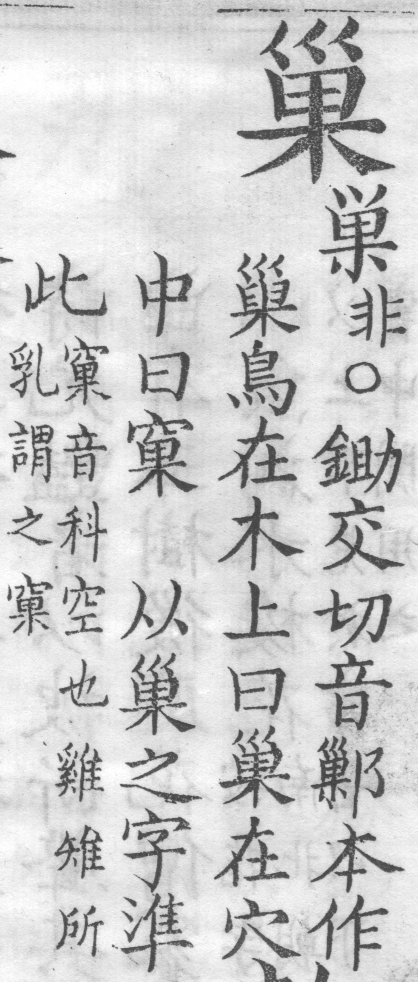 巢
巣非〇鋤交切音鄛本作
巢鳥在木上曰巢在穴
中曰窠 从巢之字準
此
窠音科空也雞雉所
乳謂之窠